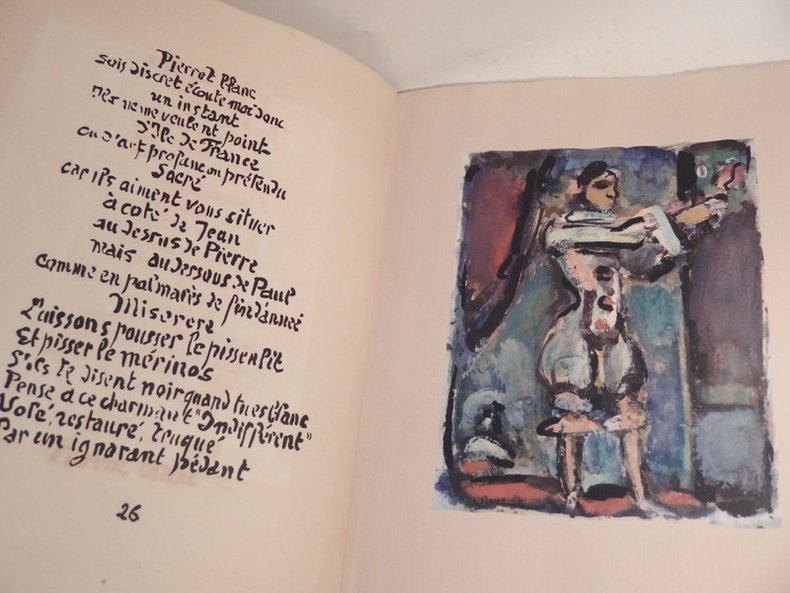 Pierrot blanc
sois discret écoute moi donc
un instant
ils ne me veulent point
d'Ile de France
ou d'art profane ou prétendu
Sacré
car ils aiment vous situer
à coté de Jean
au dessus de Pierre
mais au dessous de Paul
comme en palmarès de fin d'année
Miserere
Laissons pousser le pissenlit
Et pisser le mérinos
S'ils te disent noir quand tu es blanc
Pense à ce charmant "Indifférent"
Volé, restauré, truqué
Par un ignorant pédant
26